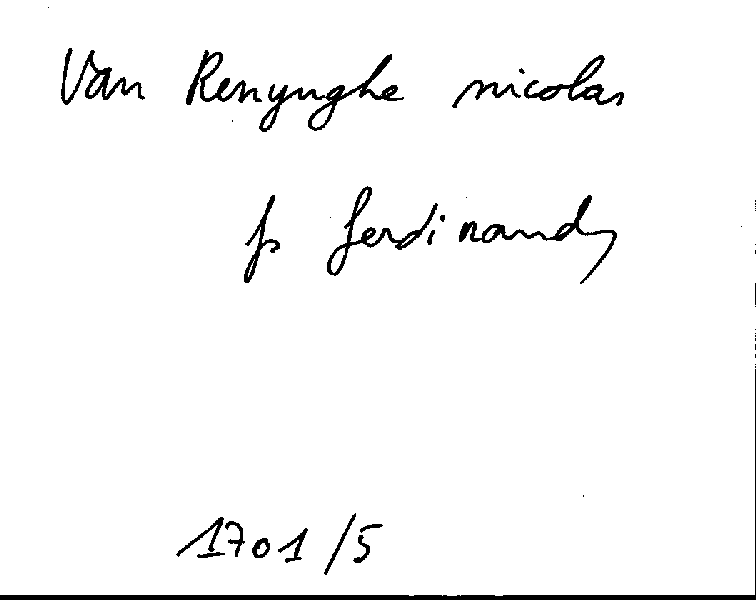 Van Renynghe nicolas
fs ferdinand
1701/5